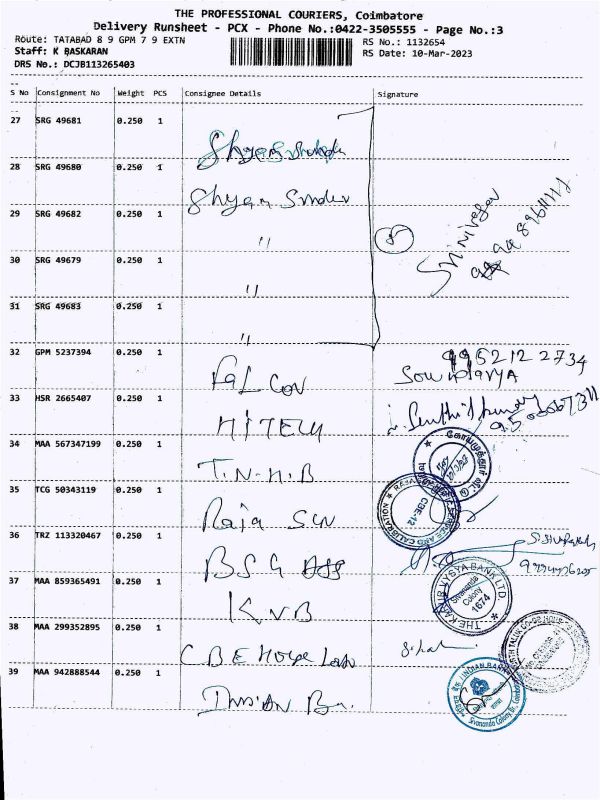 THE PROFESSIONAL COURIERS, Coimbatore
Delivery Runsheet - PCX - Phone No.:0422-3505555 - Page No.:3
Route: TATABAD 8 9 GPM 7 9 EXTN
RS No.: 1132654
Staff: K BASKARAN
RS Date: 10-Mar-2023
DRS No.: DCJB113265403
S No Consignment No Weight PCS Consignee Details Signature
27 SRG 49681 0.250 1
28 SRG 49680 0.250 1 Shyam
29 SRG 49682 0.250 1 "
5 Srinivasan
30 SRG 49679 0.250 1 "
31 SRG 49683 0.250 1 "
32 GPM 5237394 0.250 1 FALCON 9952122734
Soundarya
33 HSR 2665407 0.250 1 HITECH
34 MAA 567347199 0.250 1 T.N.H.B
35 TCG 50343119 0.250 1 Raja
CBE-12
36 TRZ 113320467 0.250 1 BSG
37 MAA 859365491 0.250 1 KVB
THE KARUR VYSYA BANK LTD.
Sivananda Colony
1674
38 MAA 299352895 0.250 1 CBE House
39 MAA 942888544 0.250 1 INDIAN
INDIAN BANK
Sivananda Colony Br.